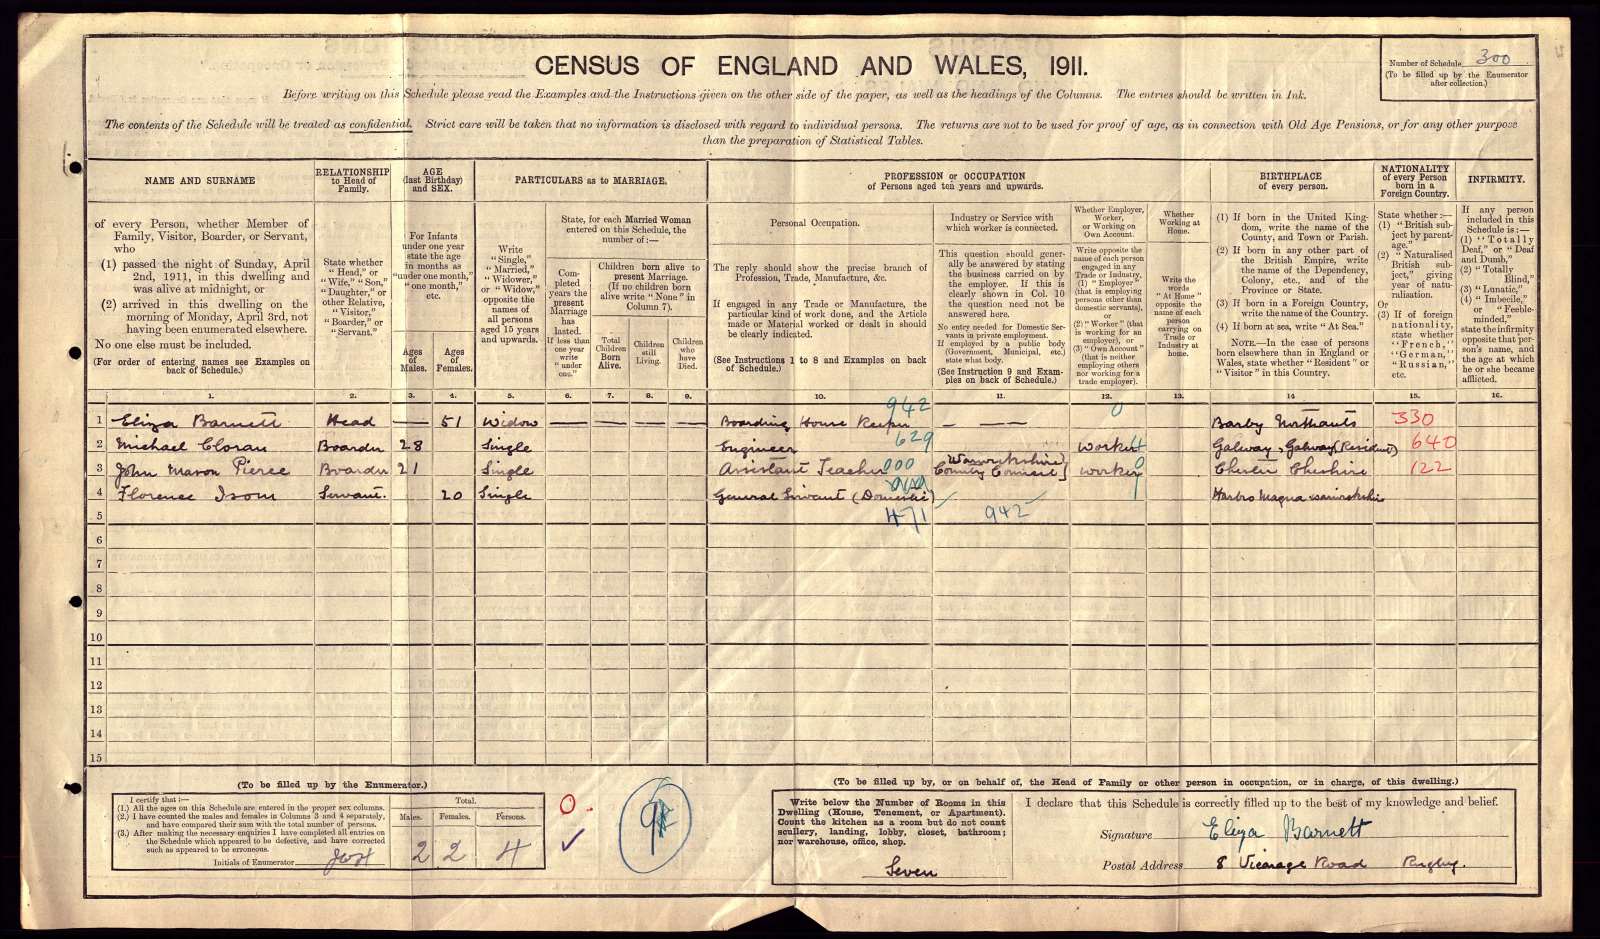 CENSUS OF ENGLAND AND WALES, 1911.
Number of Schedule 300
(To be filled up by the Enumerator
after collection.)
Before writing on this Schedule please read the Examples and the Instructions given on the other side of the paper, as well as the headings of the Columns. The entries should be written in Ink.
The contents of the Schedule will be treated as confidential. Strict care will be taken that no information is disclosed with regard to individual persons. The returns are not to be used for proof of age, as in connection with Old Age Pensions, or for any other purpose
than the preparation of Statistical Tables.
NAME AND SURNAME
of every Person, whether Member of
Family, Visitor, Boarder, or Servant,
who
(1) passed the night of Sunday, April
2nd, 1911, in this dwelling and
was alive at midnight, or
(2) arrived in this dwelling on the
morning of Monday, April 3rd, not
having been enumerated elsewhere.
No one else must be included.
(For order of entering names see Examples on
back of Schedule.)
RELATIONSHIP
to Head of
Family.
State whether
"Head," or
"Wife," "Son,"
"Daughter," or
other Relative,
"Visitor,"
"Boarder," or
"Servant."
AGE
(last Birthday)
and SEX.
For Infants
under one year
state the age
in months as
"under one month,"
"one month,"
etc.
Ages
of
Males.
Ages
of
Females.
PARTICULARS as to MARRIAGE.
Write
"Single,"
"Married,"
"Widower,"
or "Widow,"
opposite the
names of
all persons
aged 15 years
and upwards.
State, for each Married Woman
entered on this Schedule, the
number of:—
Completed
years the
present
Marriage
has
lasted.
If less than
one year
write
"under
one."
Children born alive to
present Marriage.
(If no children born
alive write "None" in
Column 7).
Total
Children
Born
Alive.
Children
still
Living.
Children
who
have
Died.
PROFESSION or OCCUPATION
of Persons aged ten years and upwards.
Personal Occupation.
The reply should show the precise branch of
Profession, Trade, Manufacture, &c.
If engaged in any Trade or Manufacture, the
particular kind of work done, and the Article
made or Material worked or dealt in should
be clearly indicated.
(See Instructions 1 to 8 and Examples on back
of Schedule.)
Industry or Service with
which worker is connected.
This question should gener-
ally be answered by stating
the business carried on by
the employer. If this is
clearly shown in Col. 10
the question need not be
answered here.
No entry needed for Domestic Ser-
vants in private employment.
If employed by a public body
(Government, Municipal, etc.)
state what body.
(See Instruction 9 and Exam-
ples on back of Schedule.)
Whether Employer,
Worker,
or Working on
Own Account.
Write opposite the
name of each person
engaged in any
Trade or Industry,
(1) "Employer"
(that is employing
persons other than
domestic servants),
or
(2) "Worker" (that
is working for an
employer), or
(3) "Own Account"
(that is neither
employing others
nor working for a
trade employer).
Whether
Working at
Home.
Write the
words
"At Home"
opposite the
name of each
person
carrying on
Trade or
Industry at
home.
BIRTHPLACE
of every person.
(1) If born in the United King-
dom, write the name of the
County, and Town or Parish.
(2) If born in any other part of
the British Empire, write
the name of the Dependency,
Colony, etc., and of the
Province or State.
(3) If born in a Foreign Country,
write the name of the Country.
(4) If born at sea, write "At Sea."
NOTE.—In the case of persons
born elsewhere than in England or
Wales, state whether "Resident" or
"Visitor" in this Country.
NATIONALITY
of every Person
born in a
Foreign Country.
State whether:—
(1) "British sub-
ject by parent-
age."
(2) "Naturalised
British sub-
ject," giving
year of natu-
ralisation.
Or
(3) If of foreign
nationality,
state whether
"French,"
"German,"
"Russian,"
etc.
INFIRMITY.
If any person
included in this
Schedule is:—
(1) "Totally
Deaf," or "Deaf
and Dumb,"
(2) "Totally
Blind,"
(3) "Lunatic,"
(4) "Imbecile,"
or "Feeble-
minded,"
state the infirmity
opposite that per-
son's name, and
the age at which
he or she became
afflicted.
1. 2. 3. 4. 5. 6. 7. 8. 9. 10. 11. 12. 13. 14 15. 16.
942 0
1 Eliza Barnett Head — 51 Widow — — — — Boarding House Keeper — — — Barby Northants 330
629
2 Michael Cloran Boarder 28 Single Engineer Worker 4 Galway, Galway (Resident) 640
3 John Mason Pierce Boarder 21 Single Assistant Teacher 000 Warwickshire County Council Worker 0 Chester Cheshire 122
4 Florence Isom Servant. 20 Single General Servant (Domestic) 1 Harbro Magna Warwickshire
5 471 942
6
7
8
9
10
11
12
13
14
15
(To be filled up by the Enumerator.)
I certify that:—
(1.) All the ages on this Schedule are entered in the proper sex columns.
(2.) I have counted the males and females in Columns 3 and 4 separately,
and have compared their sum with the total number of persons.
(3.) After making the necessary enquiries I have completed all entries on
the Schedule which appeared to be defective, and have corrected
such as appeared to be erroneous.
Initials of Enumerator
Total.
Males. Females. Persons.
2 2 4
(To be filled up by, or on behalf of, the Head of Family or other person in occupation, or in charge, of this dwelling.)
Write below the Number of Rooms in this
Dwelling (House, Tenement, or Apartment).
Count the kitchen as a room but do not count
scullery, landing, lobby, closet, bathroom;
nor warehouse, office, shop.
Seven
I declare that this Schedule is correctly filled up to the best of my knowledge and belief.
Signature Eliza Barnett
Postal Address 8 Vicarage Road Rugby.